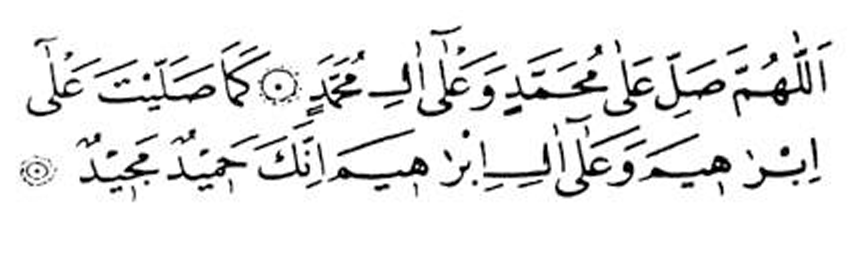 اَللّٰهُمَّ صَلِّ عَلٰى مُحَمَّدٍ وَعَلٰٓى اٰلِ مُحَمَّدٍ ۞ كَمَا صَلَّيْتَ عَلٰٓى
اِبْرٰهِيْمَ وَعَلٰٓى اٰلِ اِبْرٰهِيْمَ اِنَّكَ حَمِيْدٌ مَّجِيْدٌ ۞